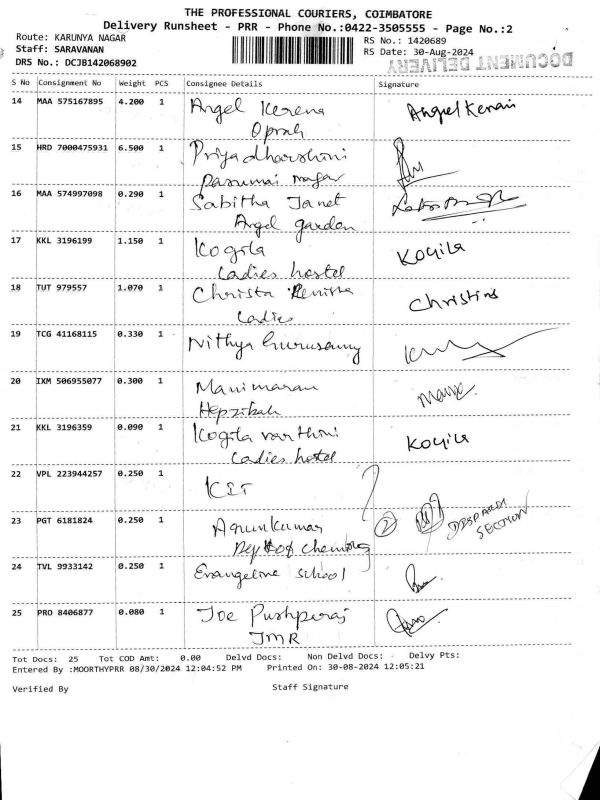 THE PROFESSIONAL COURIERS, COIMBATORE
Delivery Runsheet - PRR - Phone No.:0422-3505555 - Page No.:2
Route: KARUNYA NAGAR
RS No.: 1420689
Staff: SARAVANAN
RS Date: 30-Aug-2024
DRS No.: DCJB142068902
DOCUMENT DELIVERY
S No Consignment No Weight PCS Consignee Details Signature
14 MAA 575167895 4.200 1 Angel Kerena
Oprah
15 HRD 7000475931 6.500 1 Priyadharshini
Pasumai nagar
16 MAA 574997098 0.290 1 Sabitha Janet
Angel garden
17 KKL 3196199 1.150 1 Kogila Kogila
Ladies hostel
18 TUT 979557 1.070 1 Christa
Ladies
19 TCG 41168115 0.330 1 Nithya Gurusamy
20 IXM 506955077 0.300 1 Manimaran
Hepzibah
21 KKL 3196359 0.090 1 Kogila varthini Kogila
Ladies hostel
22 VPL 223944257 0.250 1 KIT
23 PGT 6181824 0.250 1 Arunkumar 2
SECTION
24 TVL 9933142 0.250 1 Evangeline school
25 PRO 8406877 0.080 1 Joe Pushparaj
JMR
Tot Docs: 25 Tot COD Amt: 0.00 Delvd Docs: Non Delvd Docs: Delvy Pts:
Entered By :MOORTHYPRR 08/30/2024 12:04:52 PM Printed On: 30-08-2024 12:05:21
Verified By Staff Signature